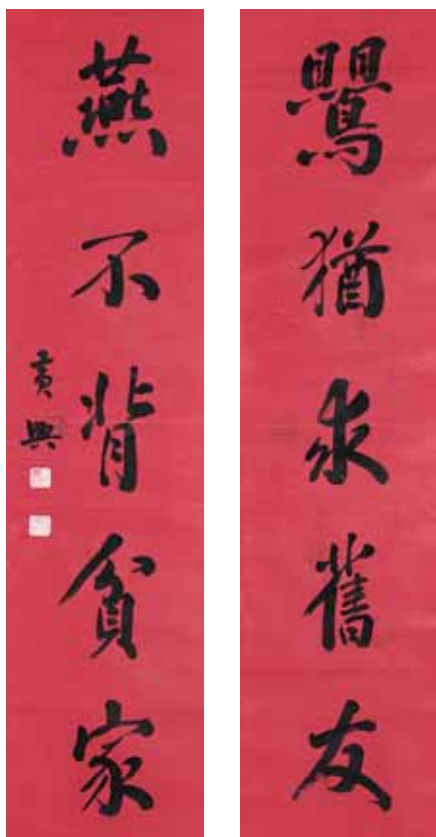 鸎猶求舊友
燕不背貧家
黃興